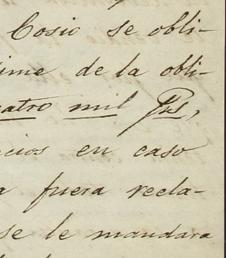 Cosio se obli-
ime de la obli-
uatro mil Ps,
icios en caso
a fuera recla-
se le mandara